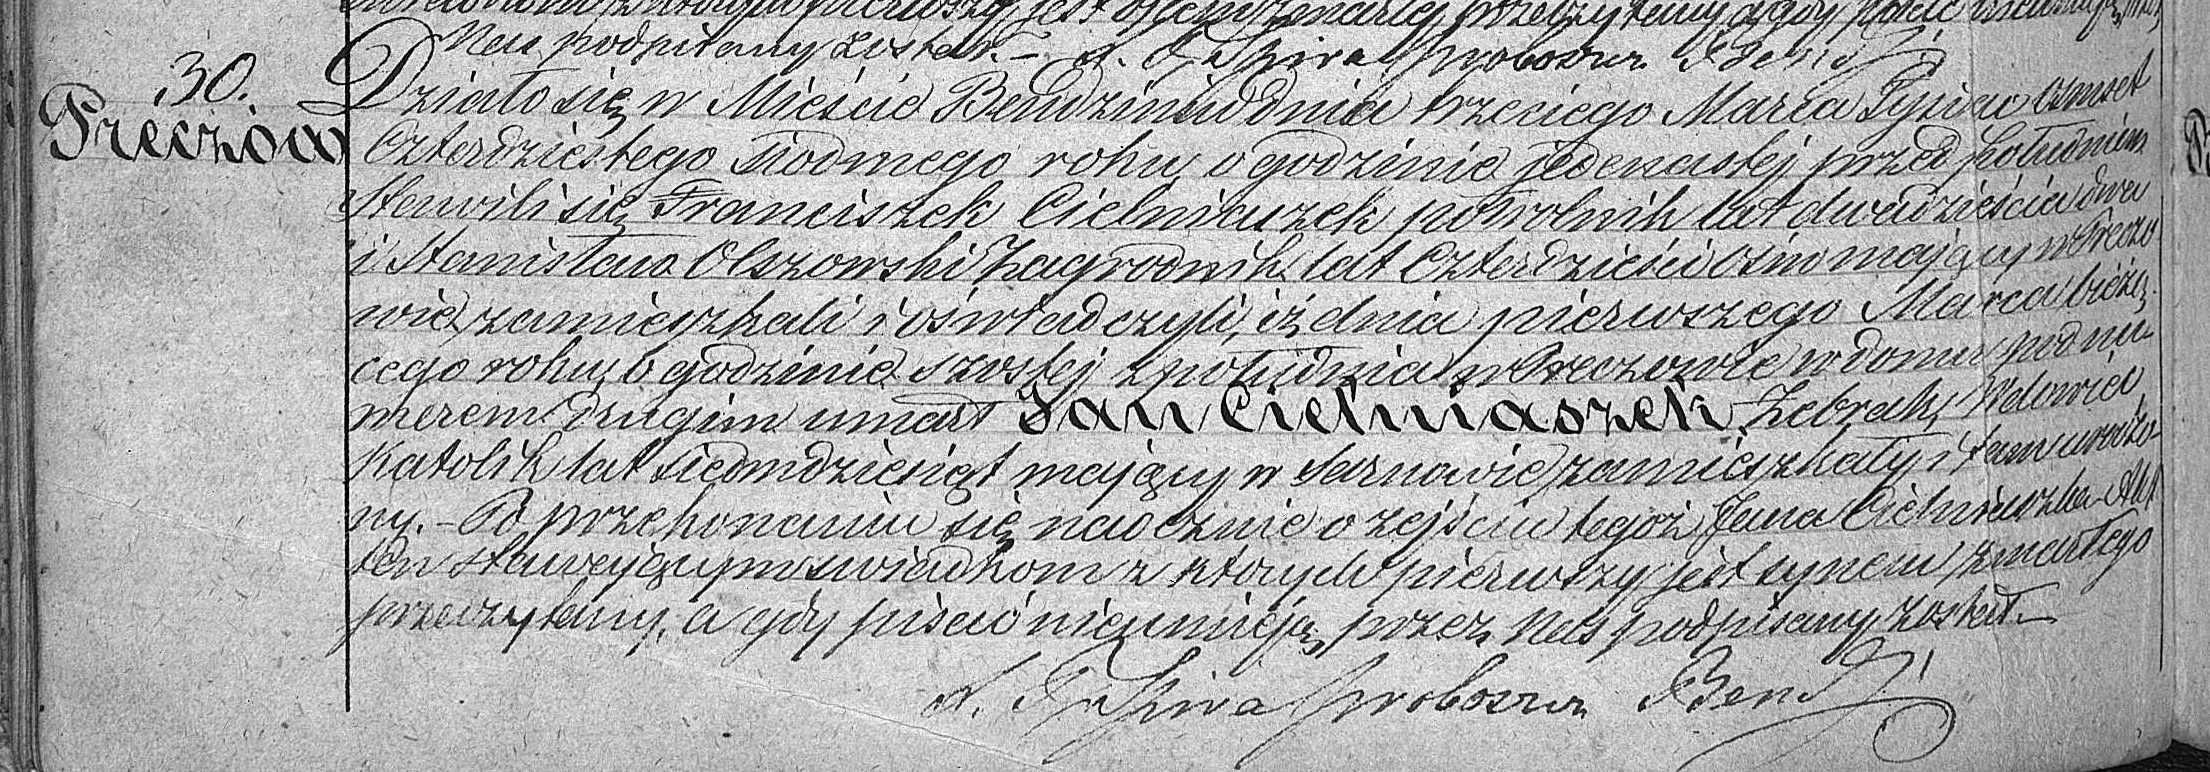 Nas podpisany został. –
30.
Preczów
Działo się w Mieście Bendzinie dnia trzeciego Marca Tysiąc osmset
Czterdziestego siodmego roku, o godzinie jedenastej przed południem
Stawili się Franciszek Cielniaszek putrolnik lat dwadzieścia dwa
i Stanisław Olszowski Zagrodnik lat Czterdzieści ośm mający w Preczo
wie zamieszkali i oświadczyli, iż dnia pierwszego Marca bieżą-
cego roku, o godzinie szostej z południa w Preczowie w domu pod nu-
merem drugim umarł Jan Cielniaszek Żebrak, Wdowiec
Katolik lat siedmdziesiąt mający w Sarnowie zamieszkały i tam urodzo-
ny. – Po przekonaniu się naocznie o zejściu tegoż Jana Cielniaszka Akt
ten stawającym świadkom z ktorych pierwszy jest synem zmarłego
przeczytany, a gdy pisać nieumieją przez Nas podpisany został. –
proboszcz Bendz